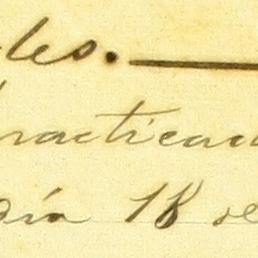 les.
practicad
día 18 de